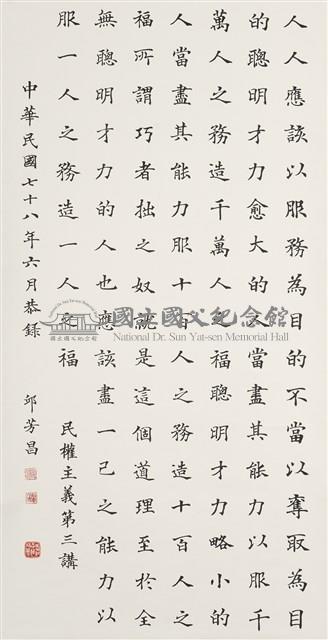 人人應該以服務為目的不當以奪取為目
的聰明才力愈大的人當盡其能力以服千
萬人之務造千萬人之福聰明才力略小的
人當盡其能力服十百人之務造十百人之
福所謂巧者拙之奴就是這個道理至於全
無聰明才力的人也應該盡一己之能力以
服一人之務造一人之福
民權主義第三講
中華民國七十八年六月恭錄
邱芳昌
國立國父紀念館
National Dr. Sun Yat-sen Memorial Hall